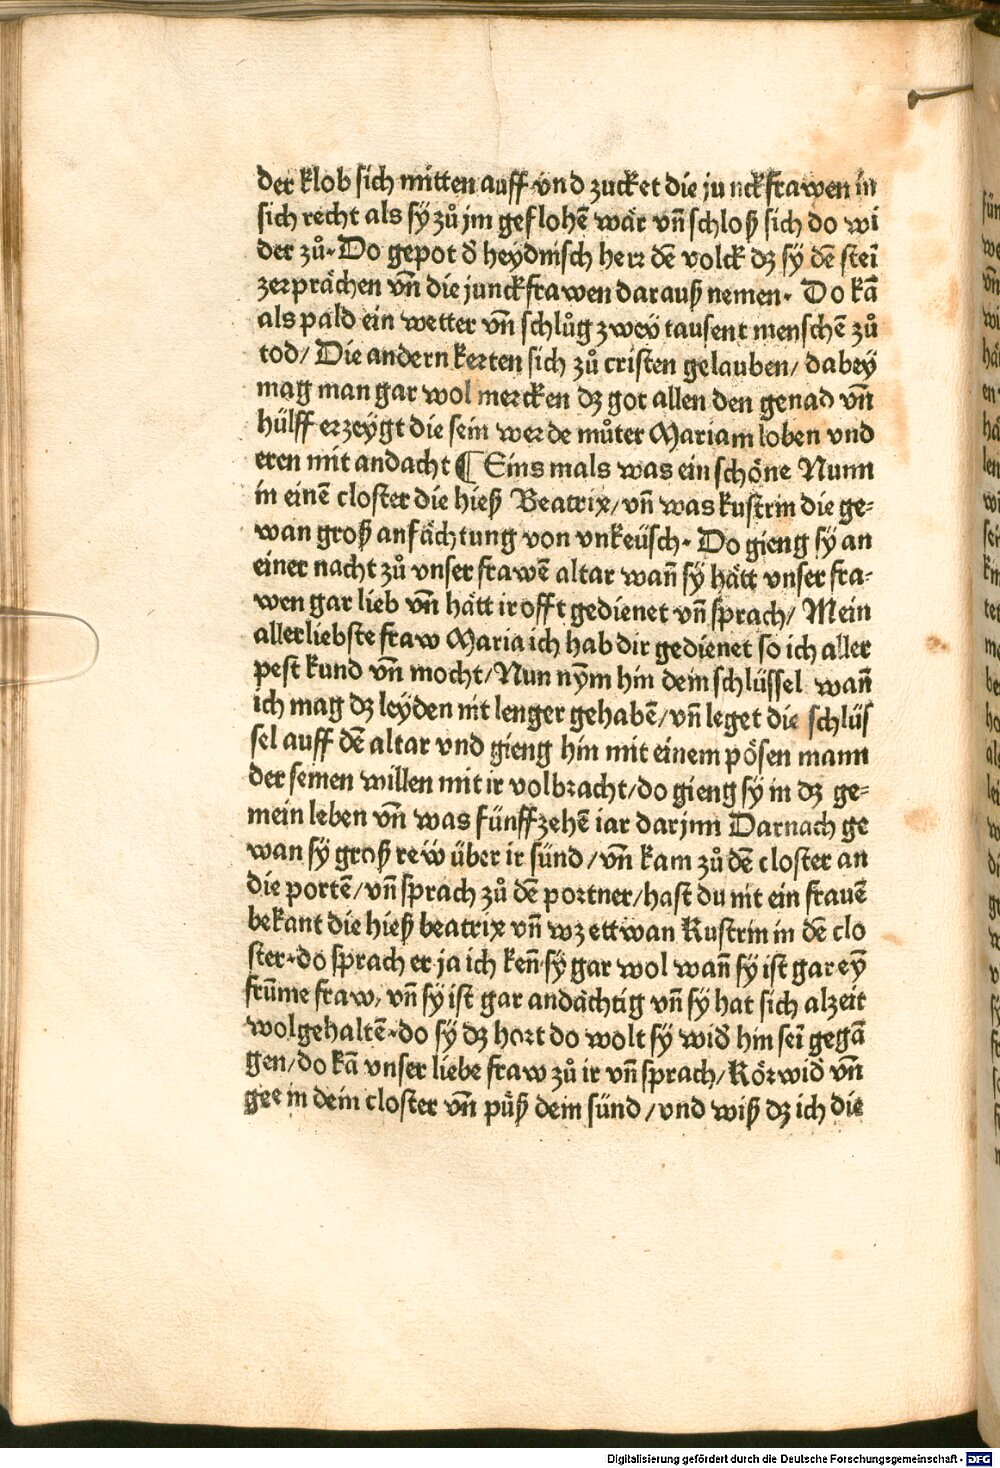 der klob sich mitten auff vnd zucket die junckfrawen in
sich recht als sÿ zů jm geflohẽ wär vñ schloß sich do wi
der zů· Do gepot d̕ heÿdnisch herr dẽ volck dz sÿ dẽ stei
zerprächen vñ die junckfrawen darauß nemen· Do kã
als pald ein wetter vñ schlůg zweÿ tausent menschẽ zů
tod/ Die andern kerten sich zů cristen gelauben/ dabeÿ
mag man gar wol mercken dz got allen den genad vñ
hülff erzeÿgt die sein werde můter Mariam loben vnd
eren mit andacht ¶ Eins mals was ein schöne Nunn
in einẽ closter die hieß Beatrix/ vñ was kustrin die ge⸗
wan groß anfächtung von vnkeüsch· Do gieng sÿ an
einer nacht zů vnser frawẽ altar wañ sÿ hätt vnser fra⸗
wen gar lieb vñ hätt ir offt gedienet vñ sprach/ Mein
allerliebste fraw Maria ich hab dir gedienet so ich aller
pest kund vñ mocht/ Nun nÿm hin dein schlüssel wañ
ich mag dz leÿden nit lenger gehabẽ/ vñ leget die schlüs
sel auff dẽ altar vnd gieng hin mit einem pösen mann
der seinen willen mit ir volbracht/ do gieng sÿ in dz ge⸗
mein leben vñ was fünffzehẽ iar darjnn Darnach ge
wan sÿ groß reẅ über ir sünd/ vñ kam zů dẽ closter an
die portẽ/ vñ sprach zů dẽ portner/ hast du nit ein frauẽ
bekant die hieß beatrix vñ wz ettwan Kustrin in dẽ clo
ster· do sprach er ja ich keñ sÿ gar wol wañ sÿ ist gar eÿ̃
frũme fraw, vñ sÿ ist gar andächtig vñ sÿ hat sich alzeit
wolgehaltẽ· do sÿ dz hort do wolt sÿ wid̕ hin sei gegã
gen/ do kã vnser liebe fraw zů ir vñ sprach/ Kör wid̕ vñ
gee in dein closter vñ püß dein sünd/ vnd wiß dz ich die
Digitalisierung gefördert durch die Deutsche Forschungsgemeinschaft - DFG